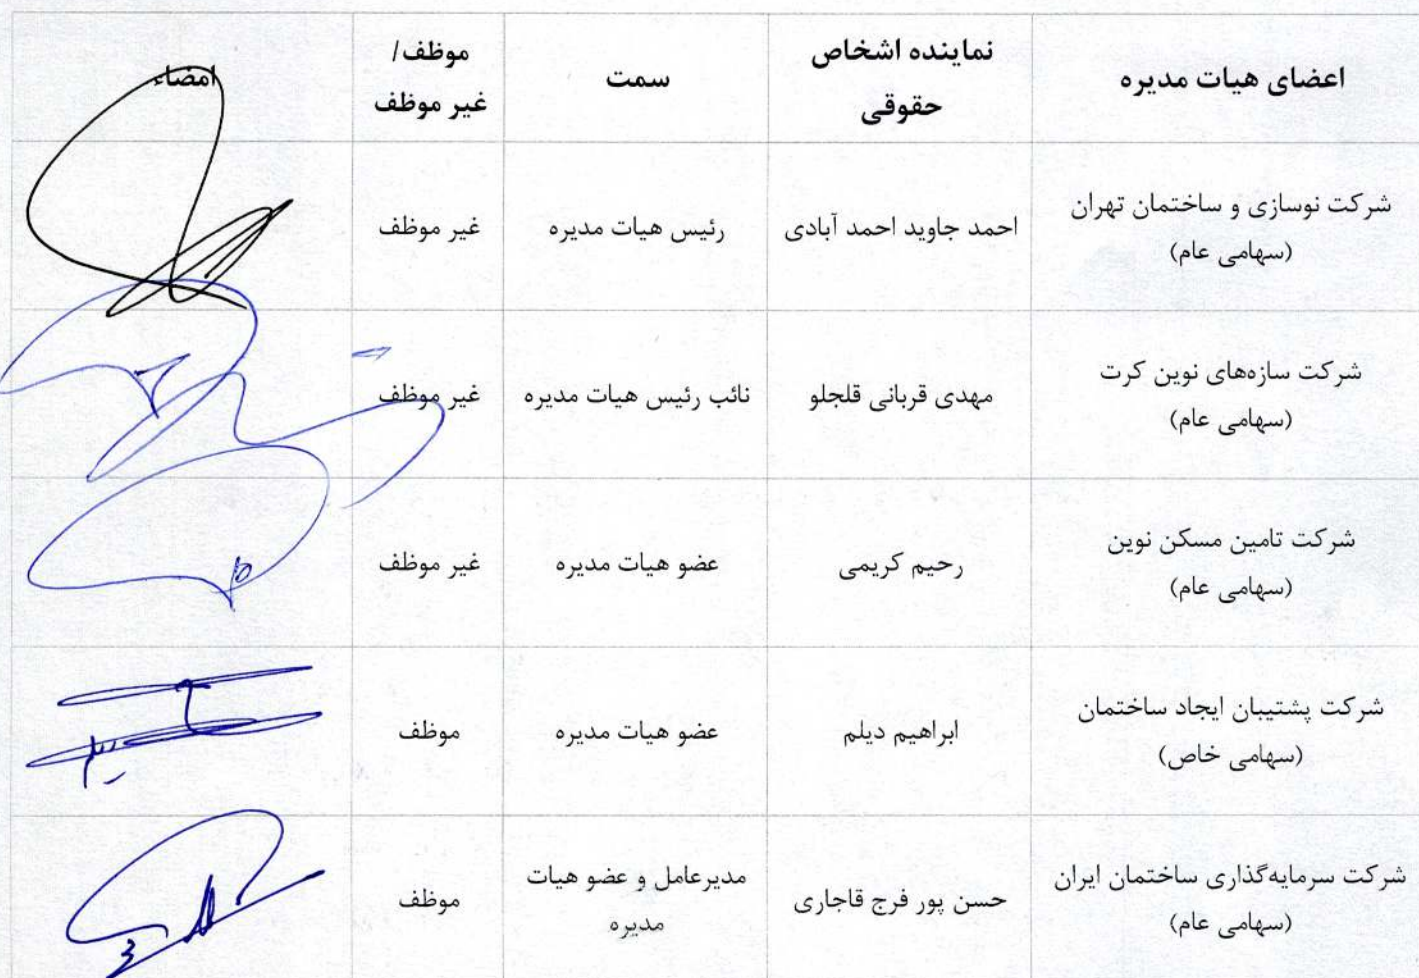 اعضای هیات مدیره
نماینده اشخاص
حقوقی
سمت
موظف/
غیر موظف
امضاء
شرکت نوسازی و ساختمان تهران
(سهامی عام)
احمد جاوید احمد آبادی
رئیس هیات مدیره
غیر موظف
شرکت سازه‌های نوین کرت
(سهامی عام)
مهدی قربانی قلجلو
نائب رئیس هیات مدیره
غیر موظف
شرکت تامین مسکن نوین
(سهامی عام)
رحیم کریمی
عضو هیات مدیره
غیر موظف
شرکت پشتیبان ایجاد ساختمان
(سهامی خاص)
ابراهیم دیلم
عضو هیات مدیره
موظف
شرکت سرمایه‌گذاری ساختمان ایران
(سهامی عام)
حسن پور فرج قاجاری
مدیرعامل و عضو هیات
مدیره
موظف